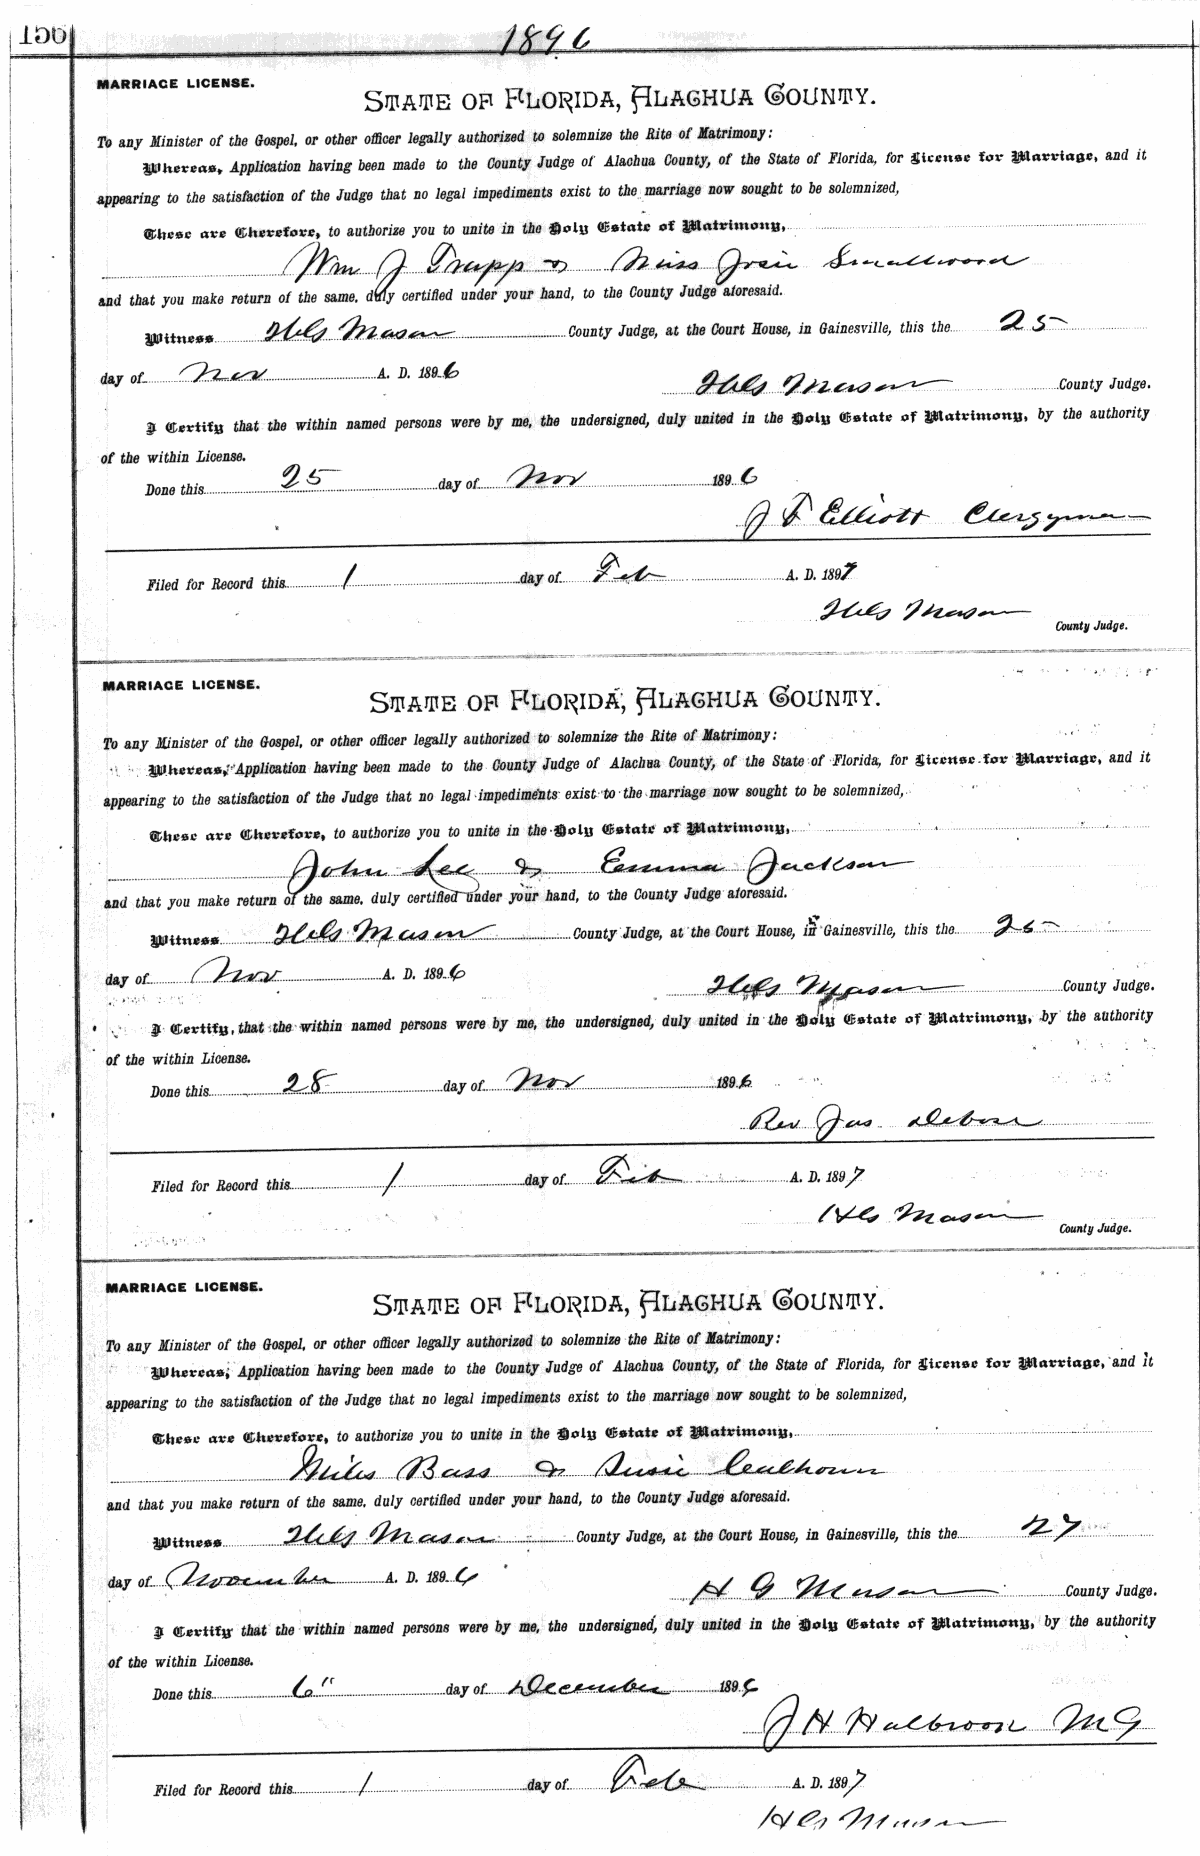 156
1896
MARRIAGE LICENSE.
STATE OF FLORIDA, ALACHUA COUNTY.
To any Minister of the Gospel, or other officer legally authorized to solemnize the Rite of Matrimony:
Whereas, Application having been made to the County Judge of Alachua County, of the State of Florida, for License for Marriage, and it
appearing to the satisfaction of the Judge that no legal impediments exist to the marriage now sought to be solemnized,
These are Therefore, to authorize you to unite in the Holy Estate of Matrimony,
Wm J Trapp & Miss Josie Smallwood
and that you make return of the same, duly certified under your hand, to the County Judge aforesaid.
Witness Mason County Judge, at the Court House, in Gainesville, this the 25
day of Nov A. D. 1896
Mason County Judge.
I Certify that the within named persons were by me, the undersigned, duly united in the Holy Estate of Matrimony, by the authority
of the within License.
Done this 25 day of Nov 1896
J F Elliott Clergyman
Filed for Record this 1 day of Feb A. D. 1897
Mason
County Judge.
MARRIAGE LICENSE.
STATE OF FLORIDA, ALACHUA COUNTY.
To any Minister of the Gospel, or other officer legally authorized to solemnize the Rite of Matrimony:
Whereas, Application having been made to the County Judge of Alachua County, of the State of Florida, for License for Marriage, and it
appearing to the satisfaction of the Judge that no legal impediments exist to the marriage now sought to be solemnized,
These are Therefore, to authorize you to unite in the Holy Estate of Matrimony,
John Lee & Emma Jackson
and that you make return of the same, duly certified under your hand, to the County Judge aforesaid.
Witness Mason County Judge, at the Court House, in Gainesville, this the 25
day of Nov A. D. 1896
Mason County Judge.
I Certify, that the within named persons were by me, the undersigned, duly united in the Holy Estate of Matrimony, by the authority
of the within License.
Done this 28 day of Nov 1896
Rev Jas Debose
Filed for Record this 1 day of Feb A. D. 1897
Mason
County Judge.
MARRIAGE LICENSE.
STATE OF FLORIDA, ALACHUA COUNTY.
To any Minister of the Gospel, or other officer legally authorized to solemnize the Rite of Matrimony:
Whereas, Application having been made to the County Judge of Alachua County, of the State of Florida, for License for Marriage, and it
appearing to the satisfaction of the Judge that no legal impediments exist to the marriage now sought to be solemnized,
These are Therefore, to authorize you to unite in the Holy Estate of Matrimony,
Miles Bass & Susie Calhoun
and that you make return of the same, duly certified under your hand, to the County Judge aforesaid.
Witness Mason County Judge, at the Court House, in Gainesville, this the 27
day of November A. D. 1896
H G Mason County Judge.
I Certify that the within named persons were by me, the undersigned, duly united in the Holy Estate of Matrimony, by the authority
of the within License.
Done this 6" day of December 1896
J H Holbrook M G
Filed for Record this 1 day of Feb A. D. 1897
Mason